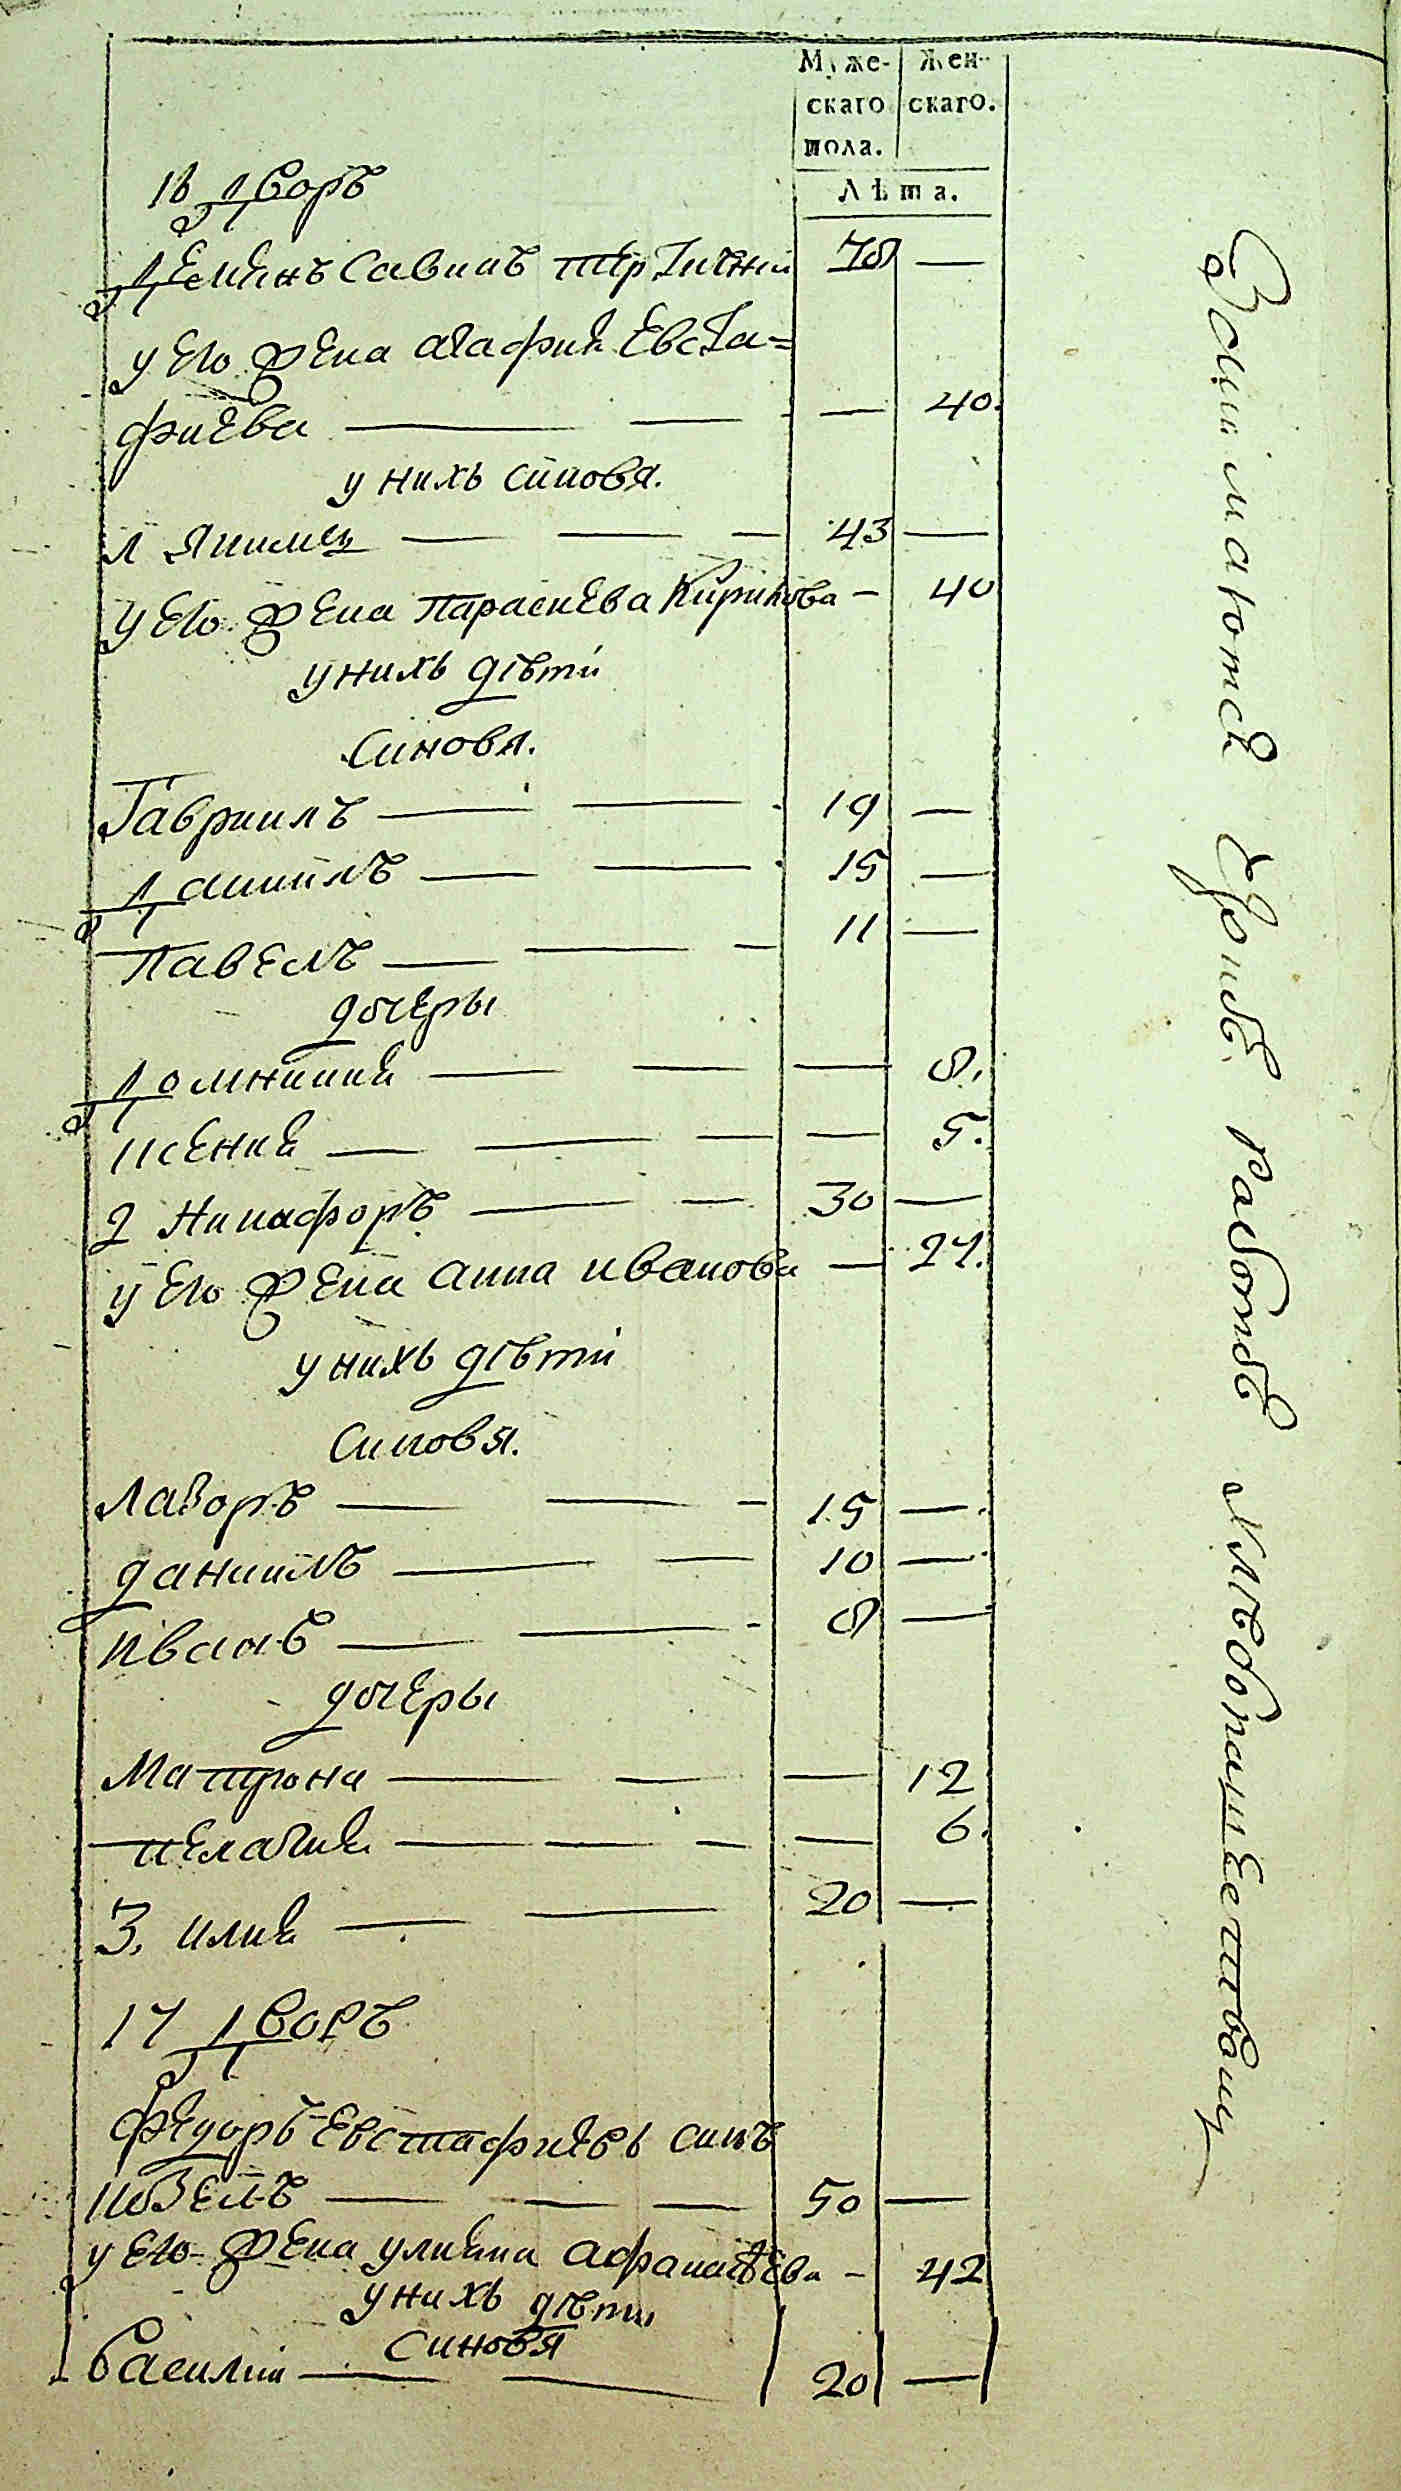 Муже-
скаго
пола.
Жен-
скаго.
Лѣта.
16 Дворъ
Демянъ Савинъ 70 —
у его жена агафия Евста=
фиева — 40.
у нихъ синовя.
1 Якимъ 43 —
у его жена Параскева Кирикова — 40
у нихъ дѣти
Синовя.
Гавриилъ 19 —
Даниилъ 15 —
Павелъ 11 —
дочеры
Домникия — 8.
Ксения — 5.
2 Никифоръ 30 —
у его жена анна иванова — 27.
у нихъ дѣти
Синовя.
Лазоръ 15 —
даниилъ 10 —
иванъ 8 —
дочеры
Матрона — 12
пелагия — 6.
3. илия 20 —
17 Дворъ
Федоръ Евстафиевъ синъ
50 —
у его жена улияна афанасѣева — 42
у нихъ дѣти
синовя
Василий 20 —
Занимаются работою хлѣбопашествомъ